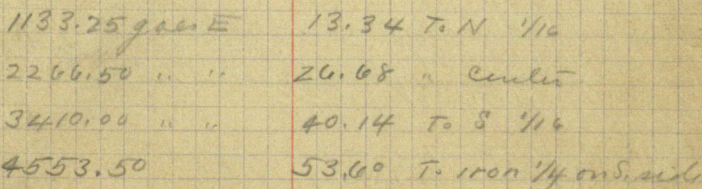 1133.25 goes E 13.34 To N 1/16
2266.50 " " 26.68 " Center
3410.00 " " 40.14 To S 1/16
4553.50 53.60 To iron 1/4 on S. side